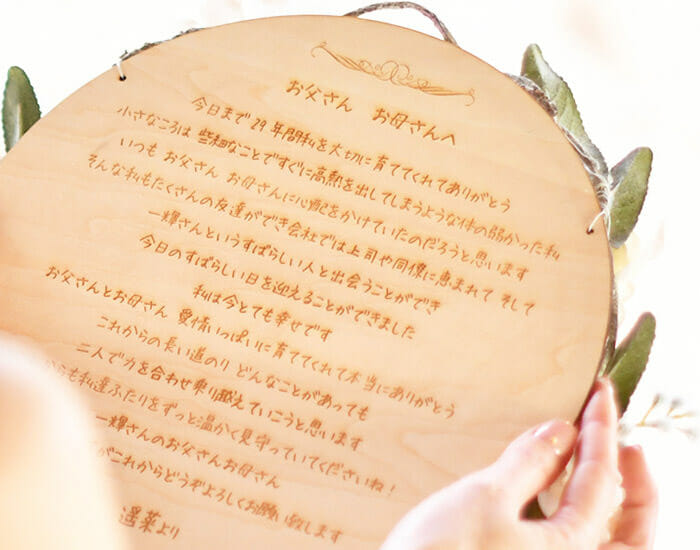 お父さん お母さんへ
今日まで29年間私を大切に育ててくれてありがとう
小さなころは 些細なことですぐに高熱を出してしまうような体の弱かった私
いつも お父さん お母さんに心配をかけていたのだろうと思います
そんな私もたくさんの友達ができ会社では上司や同僚に恵まれて そして
一輝さんというすばらしい人と出会うことができ
今日のすばらしい日を迎えることができました
私は今とても幸せです
お父さんとお母さん 愛情いっぱいに育ててくれて本当にありがとう
これからの長い道のり どんなことがあっても
二人で力を合わせ乗り越えていこうと思います
らも私達ふたりをずっと温かく見守っていてくださいね!
一輝さんのお父さんお母さん
がこれからどうぞよろしくお願い致します
遥菜より